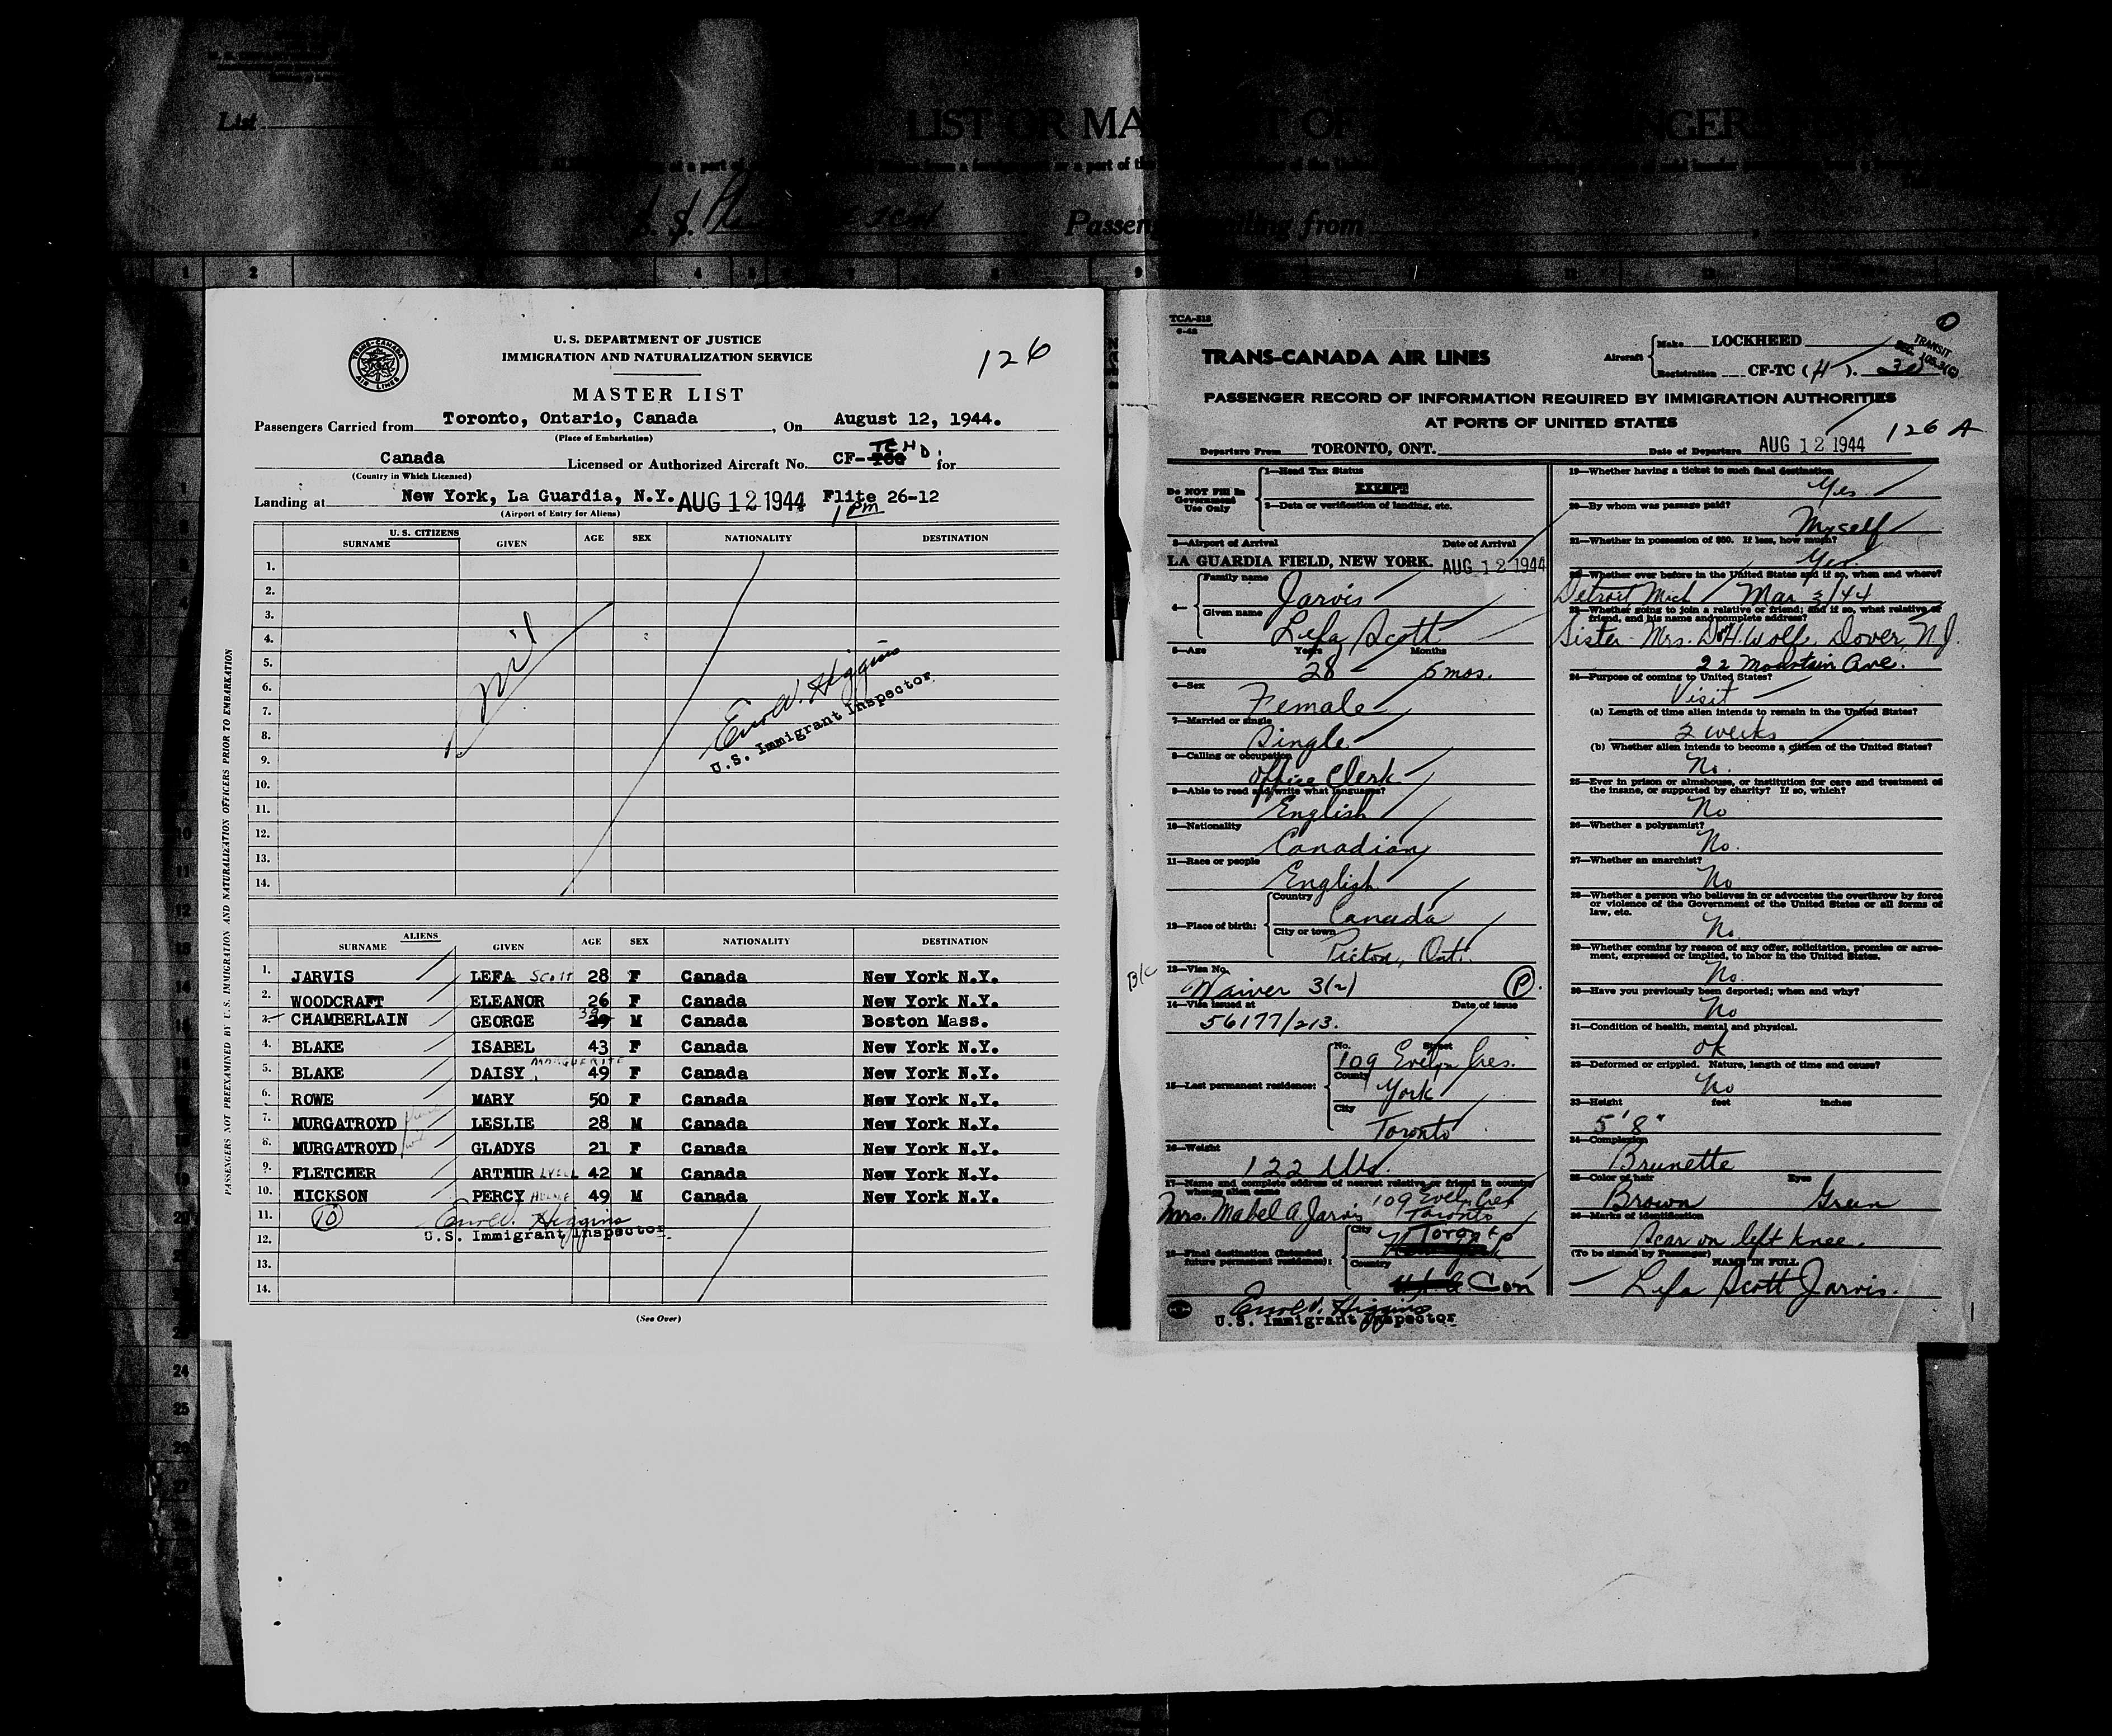 List
LIST OR MA
Passen
ling from
1 2 4 9
U. S. DEPARTMENT OF JUSTICE
IMMIGRATION AND NATURALIZATION SERVICE
126
TRANS-CANADA AIR LINES
MASTER LIST
Passengers Carried from Toronto, Ontario, Canada, On August 12, 1944.
(Place of Embarkation)
TCHD.
Canada Licensed or Authorized Aircraft No. CF- for
(Country in Which Licensed)
Landing at New York, La Guardia, N.Y. AUG 12 1944 Flite 26-12
(Airport of Entry for Aliens) 1 PM
U.S. CITIZENS
SURNAME GIVEN AGE SEX NATIONALITY DESTINATION
1.
2.
3.
4.
5.
6.
7.
8.
9.
10.
11.
12.
13.
14.
Nil
Errol V. Higgins
U.S. Immigrant Inspector
ALIENS
SURNAME GIVEN AGE SEX NATIONALITY DESTINATION
1. JARVIS LEFA Scott 28 F Canada New York N.Y.
2. WOODCRAFT ELEANOR 26 F Canada New York N.Y.
3. CHAMBERLAIN GEORGE 39 M Canada Boston Mass.
4. BLAKE ISABEL 43 F Canada New York N.Y.
5. BLAKE DAISY MARGUERITE 49 F Canada New York N.Y.
6. ROWE MARY 50 F Canada New York N.Y.
7. MURGATROYD LESLIE 28 M Canada New York N.Y.
8. MURGATROYD GLADYS 21 F Canada New York N.Y.
9. FLETCHER ARTHUR LYELL 42 M Canada New York N.Y.
10. HICKSON PERCY 49 M Canada New York N.Y.
11. 10 Errol V. Higgins
12. U.S. Immigrant Inspector
13.
14.
(See Over)
PASSENGERS NOT PREEXAMINED BY U.S. IMMIGRATION AND NATURALIZATION OFFICERS PRIOR TO EMBARKATION
TCA-313
6-42
TRANS-CANADA AIR LINES
Aircraft Make LOCKHEED
Registration CF-TC (H). 30
TRANSIT
PASSENGER RECORD OF INFORMATION REQUIRED BY IMMIGRATION AUTHORITIES
AT PORTS OF UNITED STATES
126 A
Departure From TORONTO, ONT. Date of Departure AUG 12 1944
Do NOT Fill in Government Use Only
1—Head Tax Status
EXEMPT
2—Data or verification of landing, etc.
3—Airport of Arrival Date of Arrival
LA GUARDIA FIELD, NEW YORK. AUG 12 1944
4— Family name Jarvis
Given name Lefa Scott
5—Age Years Months
28 5 mos.
6—Sex
Female
7—Married or single
Single
8—Calling or occupation
Office Clerk
9—Able to read and write what languages?
English
10—Nationality
Canadian
11—Race or people
English
12—Place of birth: Country
Canada
City or town
Picton, Ont.
B/C
13—Visa No.
Waiver 3(2) P
14—Visa issued at Date of issue
56177/213.
15—Last permanent residence: No. Street
109 Evelyn Cres.
County
York
City
Toronto
16—Weight
122 lbs.
17—Name and complete address of nearest relative or friend in country whence alien came
Mrs. Mabel A. Jarvis 109 Evelyn Cres
Toronto
18—Final destination (Intended future permanent residence): City Toronto
Country
Can
Errol V. Higgins
U.S. Immigrant Inspector
19—Whether having a ticket to such final destination
Yes.
20—By whom was passage paid?
Myself
21—Whether in possession of $50. If less, how much?
Yes.
22—Whether ever before in the United States and if so, when and where?
Detroit Mich Mar 3/44
23—Whether going to join a relative or friend; and if so, what relative or
friend, and his name and complete address?
Sister - Mrs. D. H. Wolfe, Dover, N.J.
22 Mountain Ave.
24—Purpose of coming to United States?
Visit
(a) Length of time alien intends to remain in the United States?
2 weeks
(b) Whether alien intends to become a citizen of the United States?
No.
25—Ever in prison or almshouse, or institution for care and treatment of
the insane, or supported by charity? If so, which?
No
26—Whether a polygamist?
No.
27—Whether an anarchist?
No
28—Whether a person who believes in or advocates the overthrow by force
or violence of the Government of the United States or all forms of
law, etc.
No.
29—Whether coming by reason of any offer, solicitation, promise or agree-
ment, expressed or implied, to labor in the United States.
No.
30—Have you previously been deported; when and why?
No
31—Condition of health, mental and physical.
ok
32—Deformed or crippled. Nature, length of time and cause?
No
33—Height feet inches
5' 8"
34—Complexion
Brunette
35—Color of hair Eyes
Brown Green
36—Marks of identification
Scar on left knee.
(To be signed by Passenger) NAME IN FULL
Lefa Scott Jarvis.
24
25